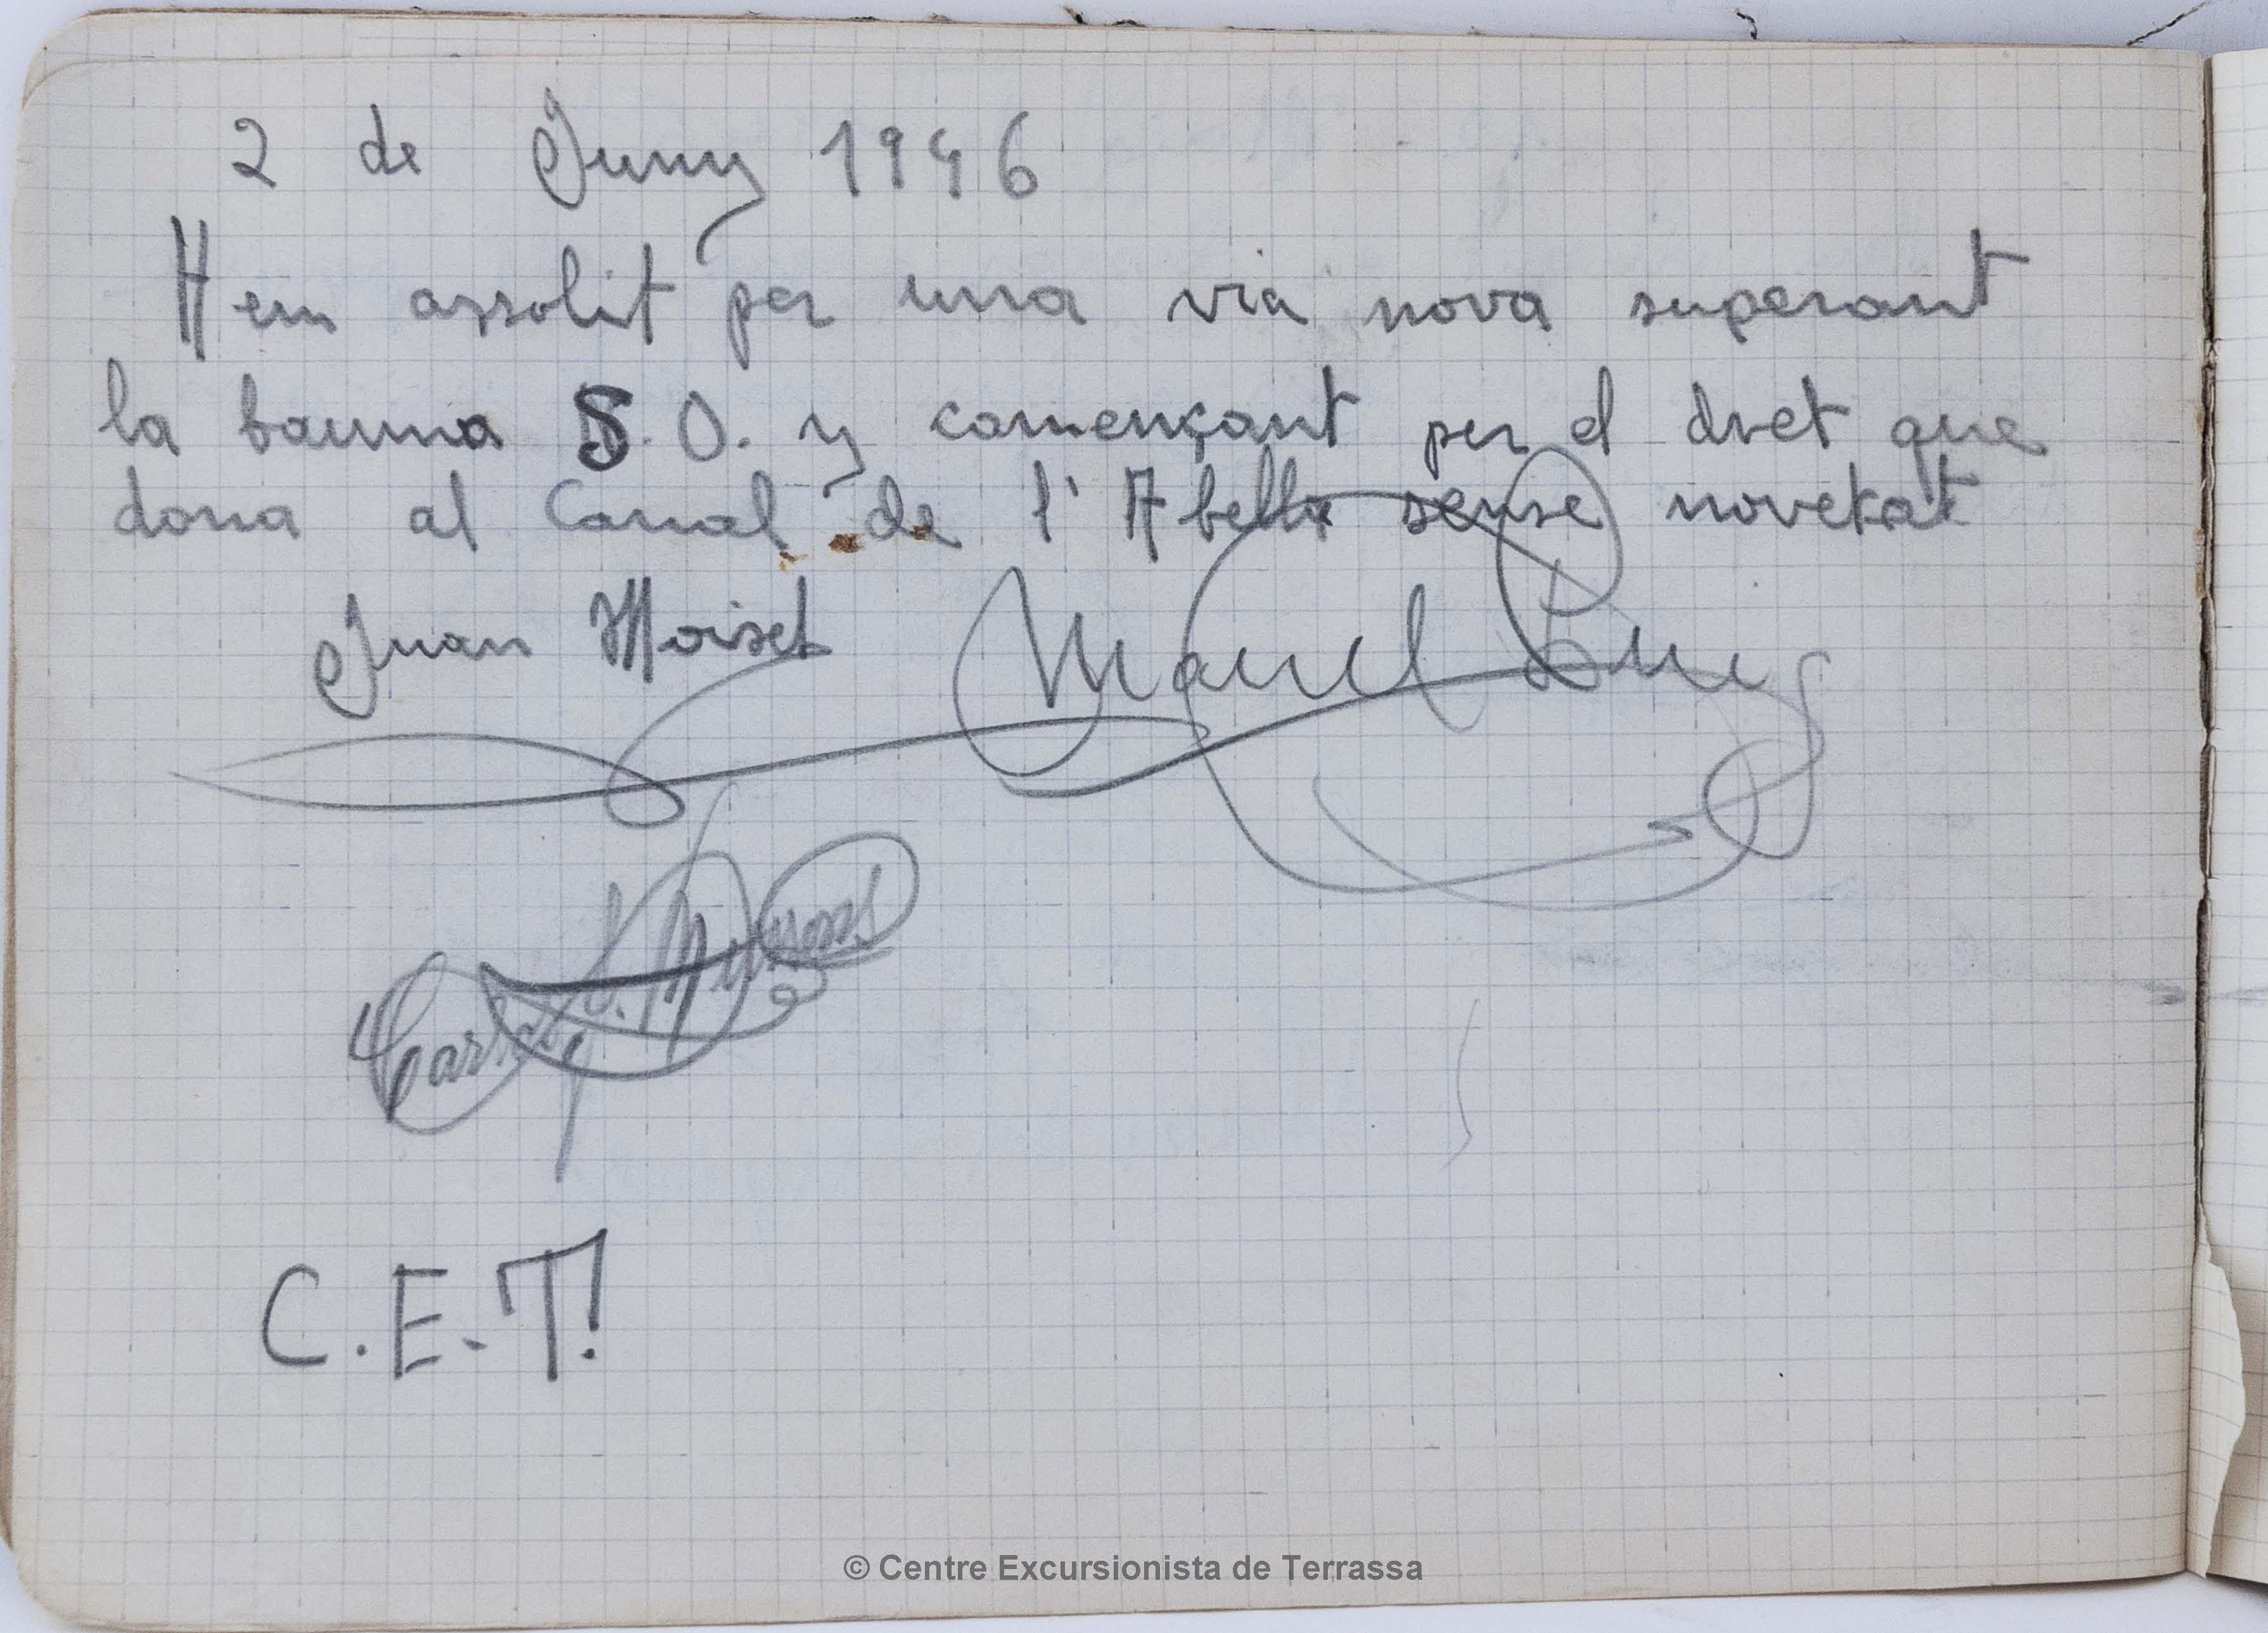 2 de Juny 1946
Hem assolit per una via nova superant
la bauma S.O. y començant per el dret que
dona al Canal de l'Abella sense novetat
Juan Moiset Manel Puig
C.E.T!
© Centre Excursionista de Terrassa